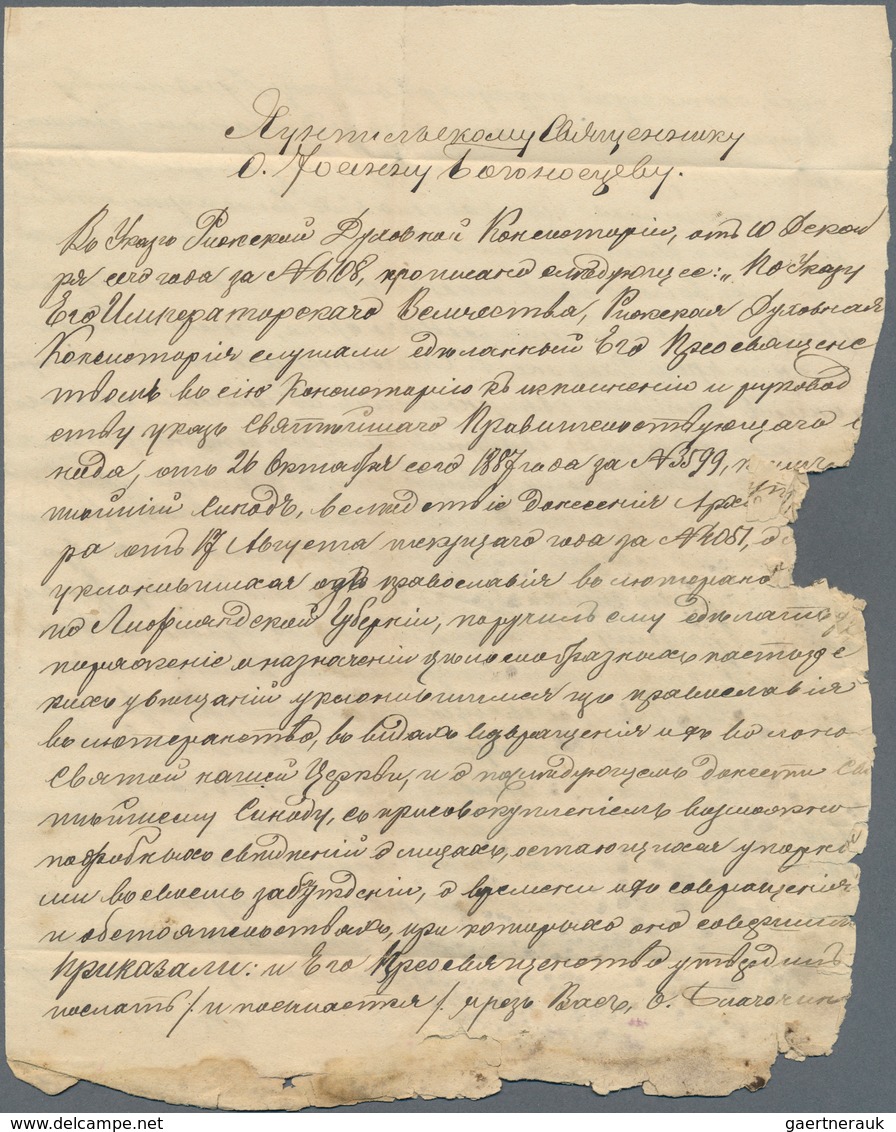 Яунпильскому Священнику
О. Іоанну Богоносцеву.
Въ Указѣ Рижской Духовной Консисторіи, отъ 10 Декаб
ря сего года за № 6108, прописано слѣдующее: „По Указу
Его Императорскаго Величества, Рижская Духовная
Консисторія слушали сданный Его Преосвященс
твомъ въ сію Консисторію къ исполненію и руковод
ству указъ Святѣйшаго Правительствующаго
нода, отъ 26 Октября сего 1887 года за № 3599,
тѣйшій Синодъ, вслѣдствіе донесенія
ра отъ 17 Августа текущаго года за № 4051,
уклонившихся отъ православія въ
по Лифляндской Губерніи, поручилъ ему сдѣлать
поряженіе о назначеніи цѣлесообразныхъ пастырс
кихъ увѣщаній уклонившимся изъ православія
въ лютеранство, въ видахъ возвращенія ихъ въ лоно
Святой нашей Церкви, и о послѣдующемъ донести Свя
тѣйшему Синоду, съ присовокупленіемъ возможно
подробныхъ свѣдѣній о лицахъ, остающихся упорны
ми въ своемъ заблужденіи, о времени ихъ совращенія
и обстоятельствахъ, при которыхъ оно
Приказали: и Его Преосвященство утвердилъ
послать /: и посылается /: чрезъ Васъ, о. Благочин
gaertnerauk